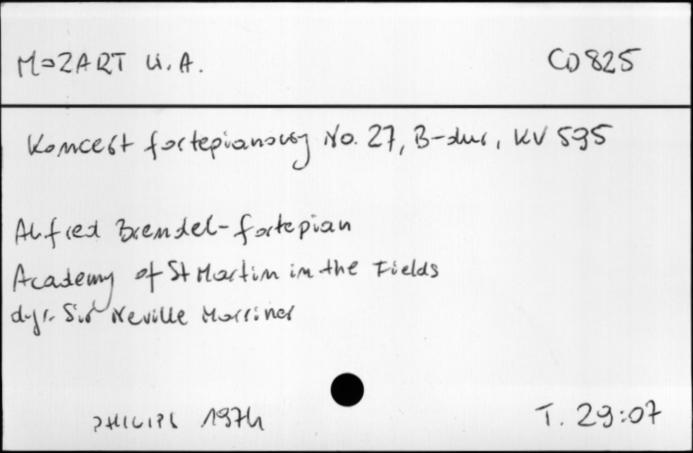 MOZART W.A.
CD 825
Koncert fortepianowy No. 27, B-dur, KV 595
Alfred Brendel - fortepian
Academy of St Martin in the Fields
dyr. Sir Neville Marriner
PHILIPS 1974
T. 29:07